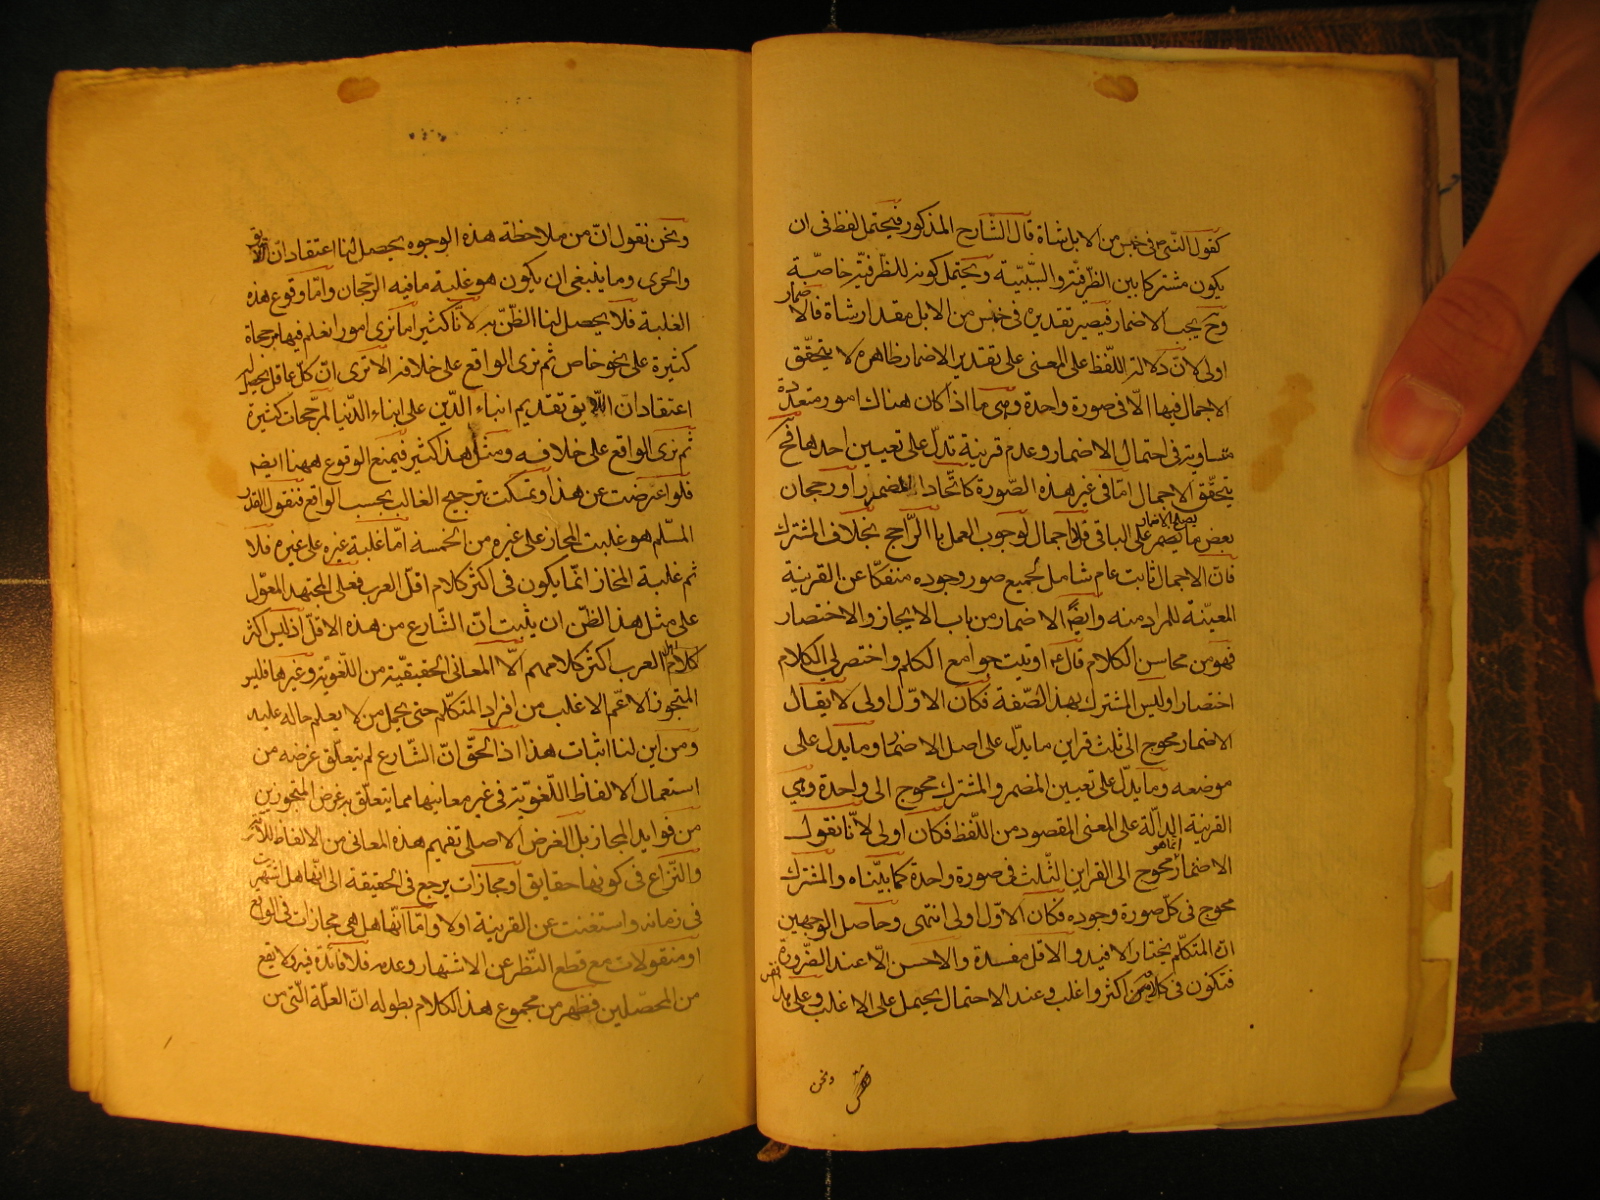 كقول النبي ص في خمس من الابل شاة قال الشارح المذكور فيحتمل لفظ في ان
يكون مشتركا بين الظرفية والسببية ويحتمل كونه للظرفية خاصة
وح يجب الاضمار فيصير تقديره في خمس من الابل مقدار شاة فالاضمار
اولى لان دلالة اللفظ على المعنى على تقدير الاضمار ظاهرة لا يتحقق
الاجمال فيها الا في صورة واحدة وهي ما اذا كان هناك امور متعددة
متساوية في احتمال الاضمار وعدم قرينة تدل على تعيين احدها فح
يتحقق الاجمال اما في غير هذه الصورة كاتحاد المضمر او رجحان
بعض ما يصلح الاضمار على الباقي فلا اجمال لوجوب العمل بالراجح بخلاف المشترك
فان الاجمال ثابت عام شامل لجميع صور وجوده منفكا عن القرينة
المعينة للمراد منه وايضا الاضمار من باب الايجاز والاختصار
فهو من محاسن الكلام قال ع اوتيت جوامع الكلم واختصر لي الكلام
اختصارا وليس المشترك بهذه الصفة فكان الاول اولى لا يقال
الاضمار محوج الى ثلث قراين ما يدل على اصل الاضمار وما يدل على
موضعه وما يدل على تعيين المضمر والمشترك محوج الى واحدة وهي
القرينة الدالة على المعنى المقصود من اللفظ فكان اولى لانا نقول
الاضمار انما هو محوج الى القراين الثلث في صورة واحدة كما بيناه والمشترك
محوج في كل صورة وجوده فكان الاول اولى انتهى وحاصل الوجهين
ان المتكلم يختار الافيد والاقل مفسدة والاحسن الا عند الضرورة
فتكون في كلامهم اكثر واغلب وعند الاحتمال يحمل على الاغلب وعلى هذا
ونحن
ونحن نقول ان من ملاحظة هذه الوجوه يحصل لنا اعتقاد ان اللايق
والحرى وما ينبغي ان يكون هو غلبة ما فيه الرجحان واما وقوع هذه
الغلبة فلا يحصل لنا الظن به لانا كثيرا ما نرى امورا نعلم فيها مرجحات
كثيرة على نحو خاص ثم نرى الواقع على خلافه الا ترى ان كل عاقل يحصل له
اعتقاد ان اللايق تقديم ابناء الدين على ابناء الدنيا لمرجحات كثيرة
ثم نرى الواقع على خلافه ومثل هذا كثير فيمنع الوقوع ههنا ايضا
فلو اعرضت عن هذا وتمسكت بترجيح الغالب بحسب الواقع فنقول القدر
المسلم هو غلبة المجاز على غيره من الخمسة اما غلبة غيره على غيره فلا
ثم غلبة المجاز انما يكون في اكثر كلام اقل العرب فعلى المجتهد المعول
على مثل هذا الظن ان يثبت ان الشارع من هذه الاقل اذ ليس اكثر
كلام اهل العرب اكثر كلامهم الا المعاني الحقيقية من اللغوية وغيرها فليس
المتجوز الاعم الاغلب من افراد المتكلم حتى يحمل من لا يعلم حاله عليه
ومن اين لنا اثبات هذا اذ الحق ان الشارع لم يتعلق غرضه من
استعمال الالفاظ اللغوية في غير معانيها مما يتعلق به غرض المتجوزين
من فوايد المجاز بل الغرض الاصلي تفهيم هذه المعاني من الالفاظ
والنزاع في كونها حقايق او مجازات يرجع في الحقيقة الى انها هل اشتهرت
في زمانه واستغنت عن القرينة اولا واما انها هل هي مجازات في الواقع
او منقولات مع قطع النظر عن الاشتهار وعدمه فلا فائدة فيه ولا يقع
من المحصلين فظهر من مجموع هذا الكلام بطوله ان العلة التي من